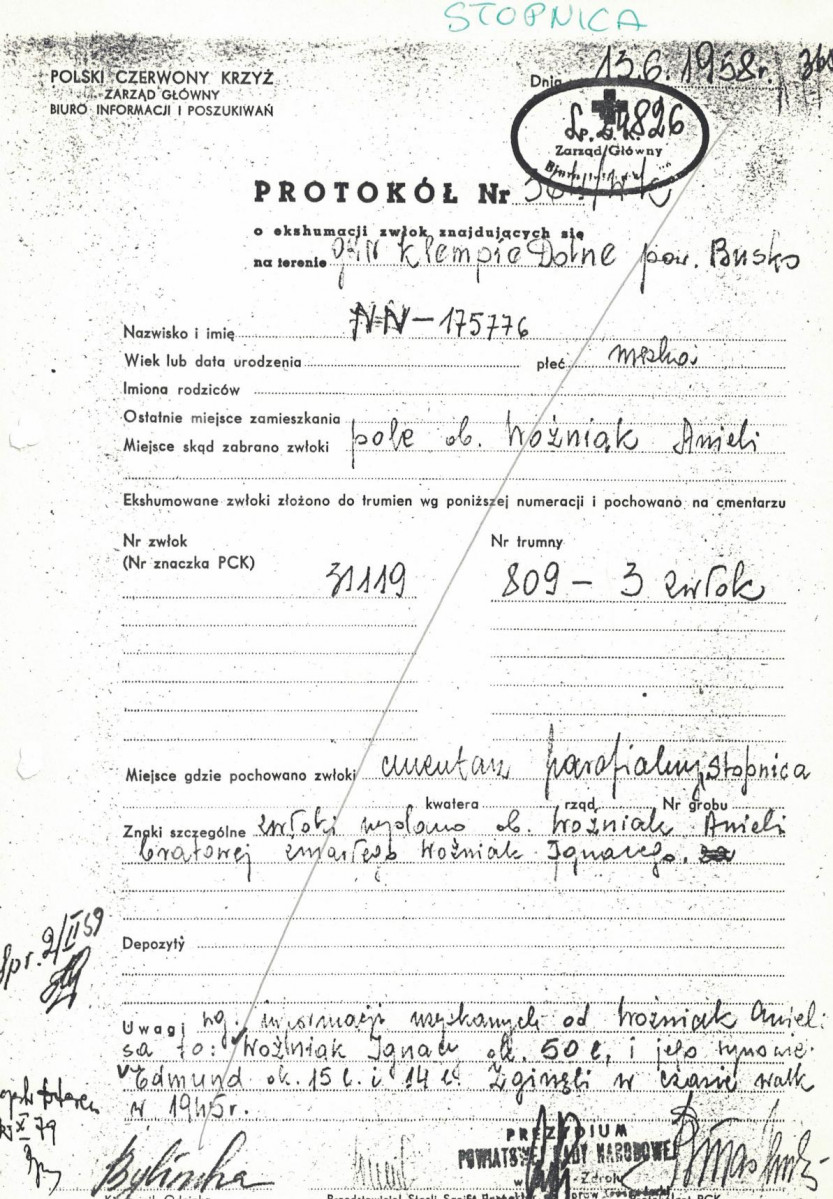 STOPNICA
POLSKI CZERWONY KRZYŻ
ZARZĄD GŁÓWNY
BIURO INFORMACJI I POSZUKIWAŃ
Dnia 13.6.1958r.
4826
Zarząd Główny
PROTOKÓŁ Nr
o ekshumacji zwłok znajdujących się
na terenie Klempie Dolne pow. Busko
Nazwisko i imię NN – 175776
Wiek lub data urodzenia płeć męska
Imiona rodziców
Ostatnie miejsce zamieszkania
Miejsce skąd zabrano zwłoki pole ob. Woźniak Anieli
Ekshumowane zwłoki złożono do trumien wg poniższej numeracji i pochowano na cmentarzu
Nr zwłok Nr trumny
(Nr znaczka PCK) 31119 809 – 3 zwłok
Miejsce gdzie pochowano zwłoki cmentarz parafialny, Stopnica
kwatera rząd Nr grobu
Znaki szczególne zwłoki wydano ob. Woźniak Anieli
bratowej zmarłego Woźniak Ignacego.
Depozyty
Spr. 2/II 59
Uwagi wg. informacji uzyskanych od Woźniak Anieli
są to: Woźniak Ignacy ok. 50 l, i jego synowie
Edmund ok. 15 l. i 14 l. Zginęli w czasie walk
w 1945r.
X 79
PREZYDIUM
POWIATOWEJ RADY NARODOWEJ
Zdroju
Bylińska